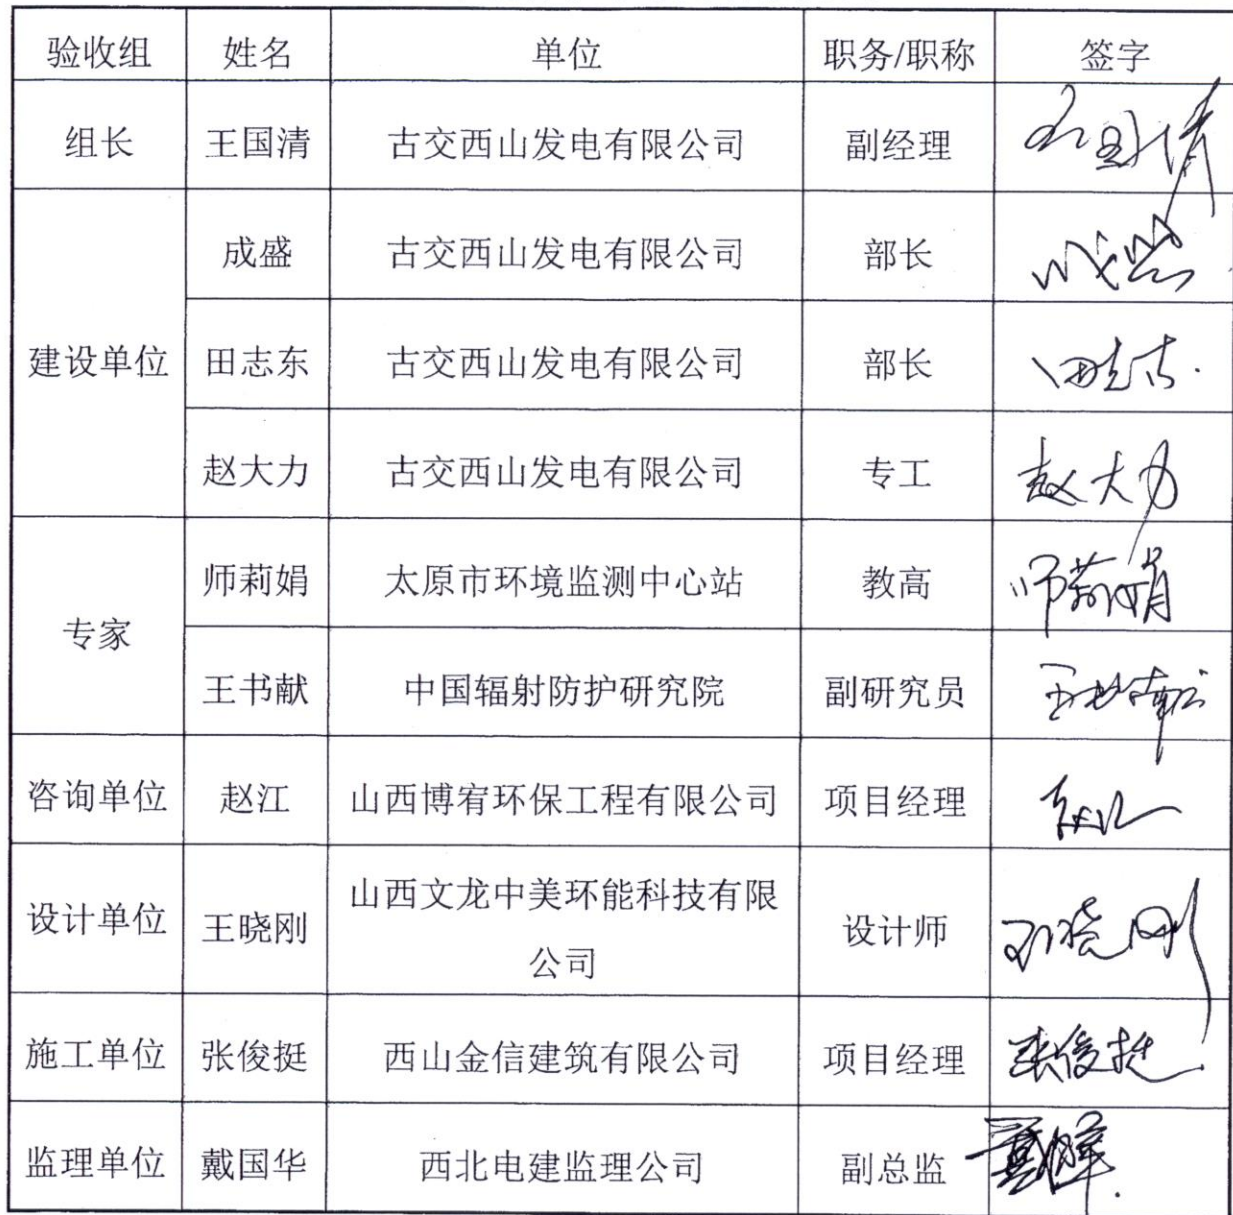 验收组 姓名 单位 职务/职称 签字
组长 王国清 古交西山发电有限公司 副经理 王国清
建设单位 成盛 古交西山发电有限公司 部长 成盛
田志东 古交西山发电有限公司 部长 田志东
赵大力 古交西山发电有限公司 专工 赵大力
专家 师莉娟 太原市环境监测中心站 教高 师莉娟
王书献 中国辐射防护研究院 副研究员 王书献
咨询单位 赵江 山西博宥环保工程有限公司 项目经理 赵江
设计单位 王晓刚 山西文龙中美环能科技有限 设计师 王晓刚
公司
施工单位 张俊挺 西山金信建筑有限公司 项目经理 张俊挺
监理单位 戴国华 西北电建监理公司 副总监